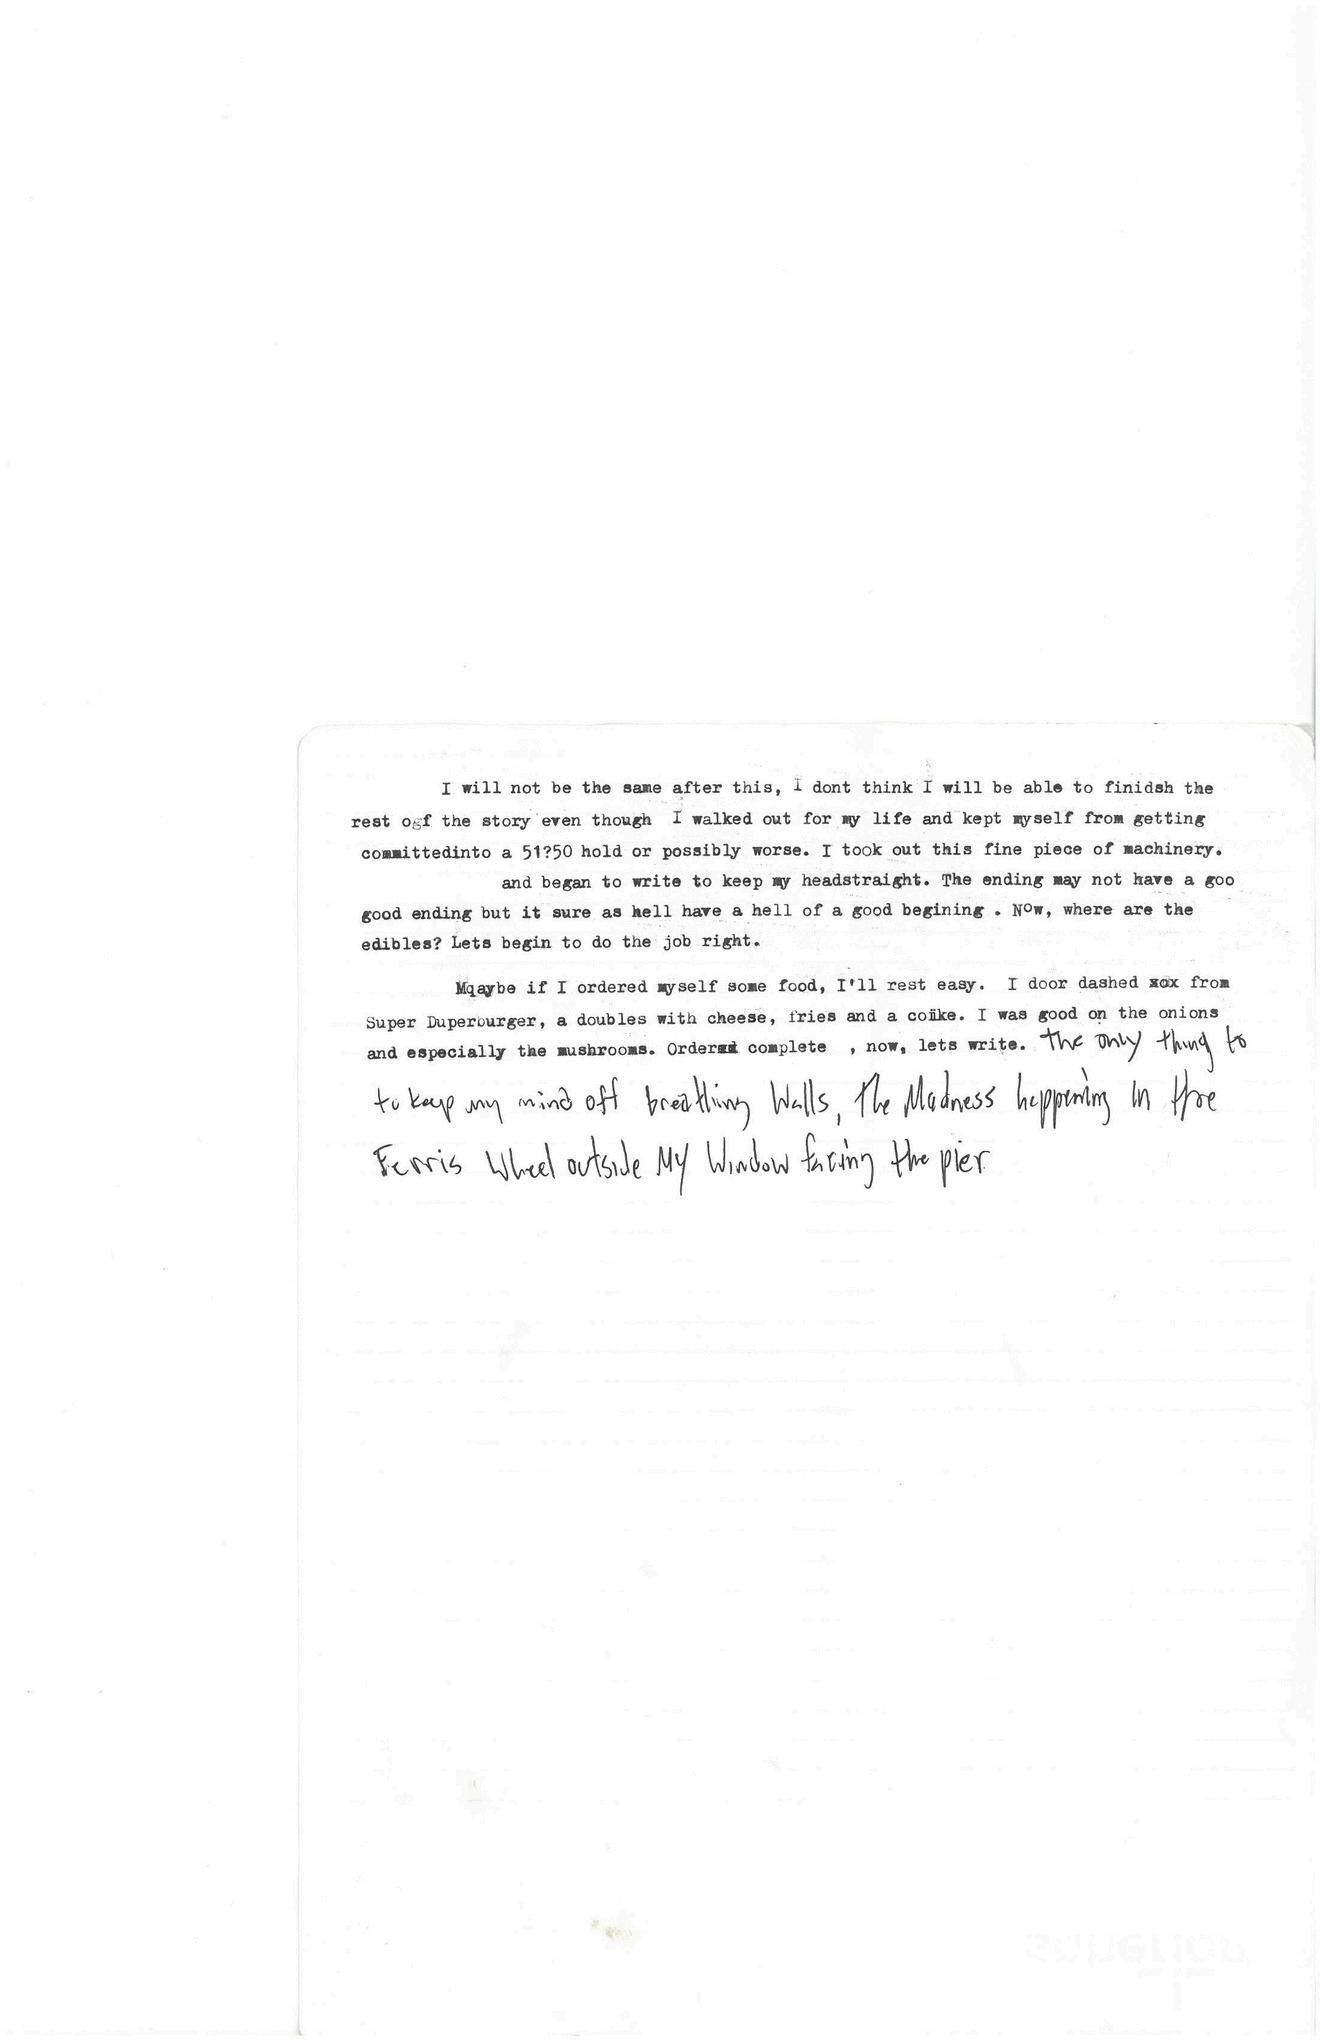 I will not be the same after this, I dont think I will be able to finidsh the
rest ogf the story even though I walked out for my life and kept myself from getting
committedinto a 51?50 hold or possibly worse. I took out this fine piece of machinery.
and began to write to keep my headstraight. The ending may not have a goo
good ending but it sure as hell have a hell of a good begining . NOw, where are the
edibles? Lets begin to do the job right.
Mqaybe if I ordered myself some food, I'll rest easy. I door dashed xox from
Super Duperburger, a doubles with cheese, fries and a coike. I was good on the onions
and especially the mushrooms. Ordered complete , now, lets write. The only thing to
to keep my mind off breathing Walls, The Madness happening In the
Ferris Wheel outside My Window facing the pier